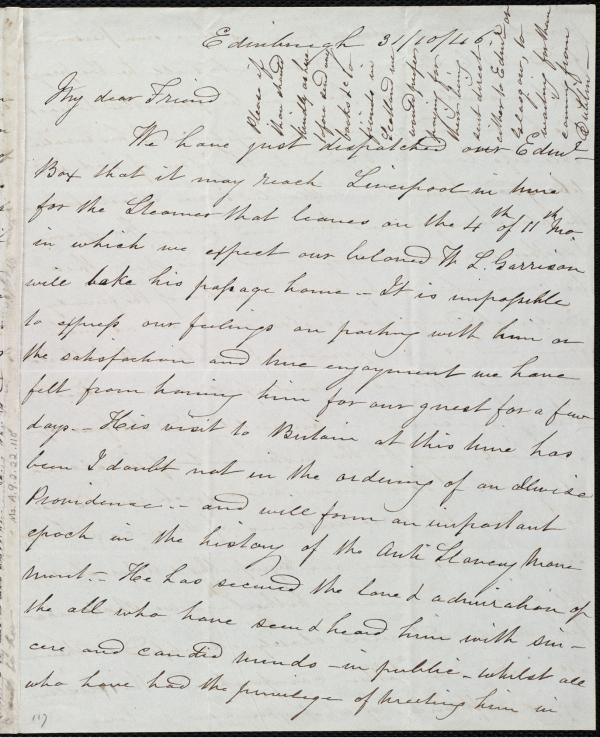 Edinburgh 31/10/46
My dear Friend
We have just dispatched our Edinr
Box that it may reach Liverpool in time
for the Steamer that leaves on the 4th of 11th Mo.
in which we expect our beloved W L. Garrison
will take his passage home - It is impossible
to express our feelings on parting with him or
the satisfaction and true enjoyment we have
felt from having him for our guest for a few
days. - His visit to Britain at this time has
been I doubt not in the ordering of an allwise
Providence - and will form an important
epoch in the history of the Anti Slavery Move
ment. - He has secured the love & admiration of
the all who have seen & heard him with sin-
cere and candid minds - in public - whilst all
who have had the privilege of meeting him in
Please if
thou should
kindly as here
tofore send any
packet to
friends in
Scotland we
would prefer
their being
sent direct
either to Edinr or
Glasgow, to
coming from
Dublin -
Ms. A.9.2.22.118
117